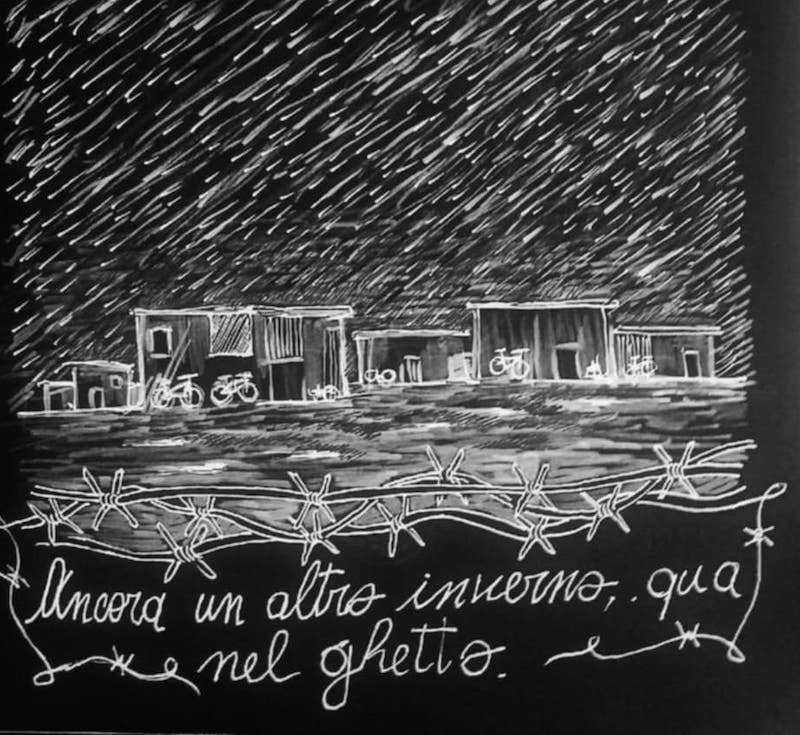 Ancora un altro inverno, qua
nel ghetto.